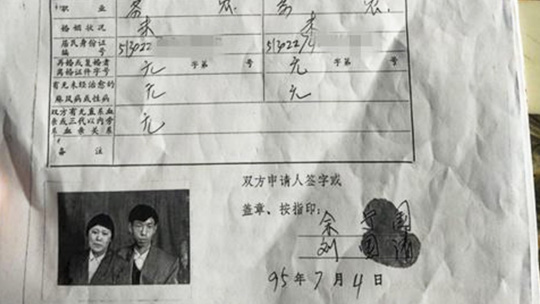 职业 务农 务农
婚姻状况 未 未
居民身份证编号 513022 513022
再婚或复婚者离婚证件字号 无 字第 号 无 字第 号
有无未经治愈的麻风病或性病 无 无
双方有无直系血亲或三代以内旁系血亲关系 无
备注
双方申请人签字或
盖章、按指印:
余
刘国
95年7月4日